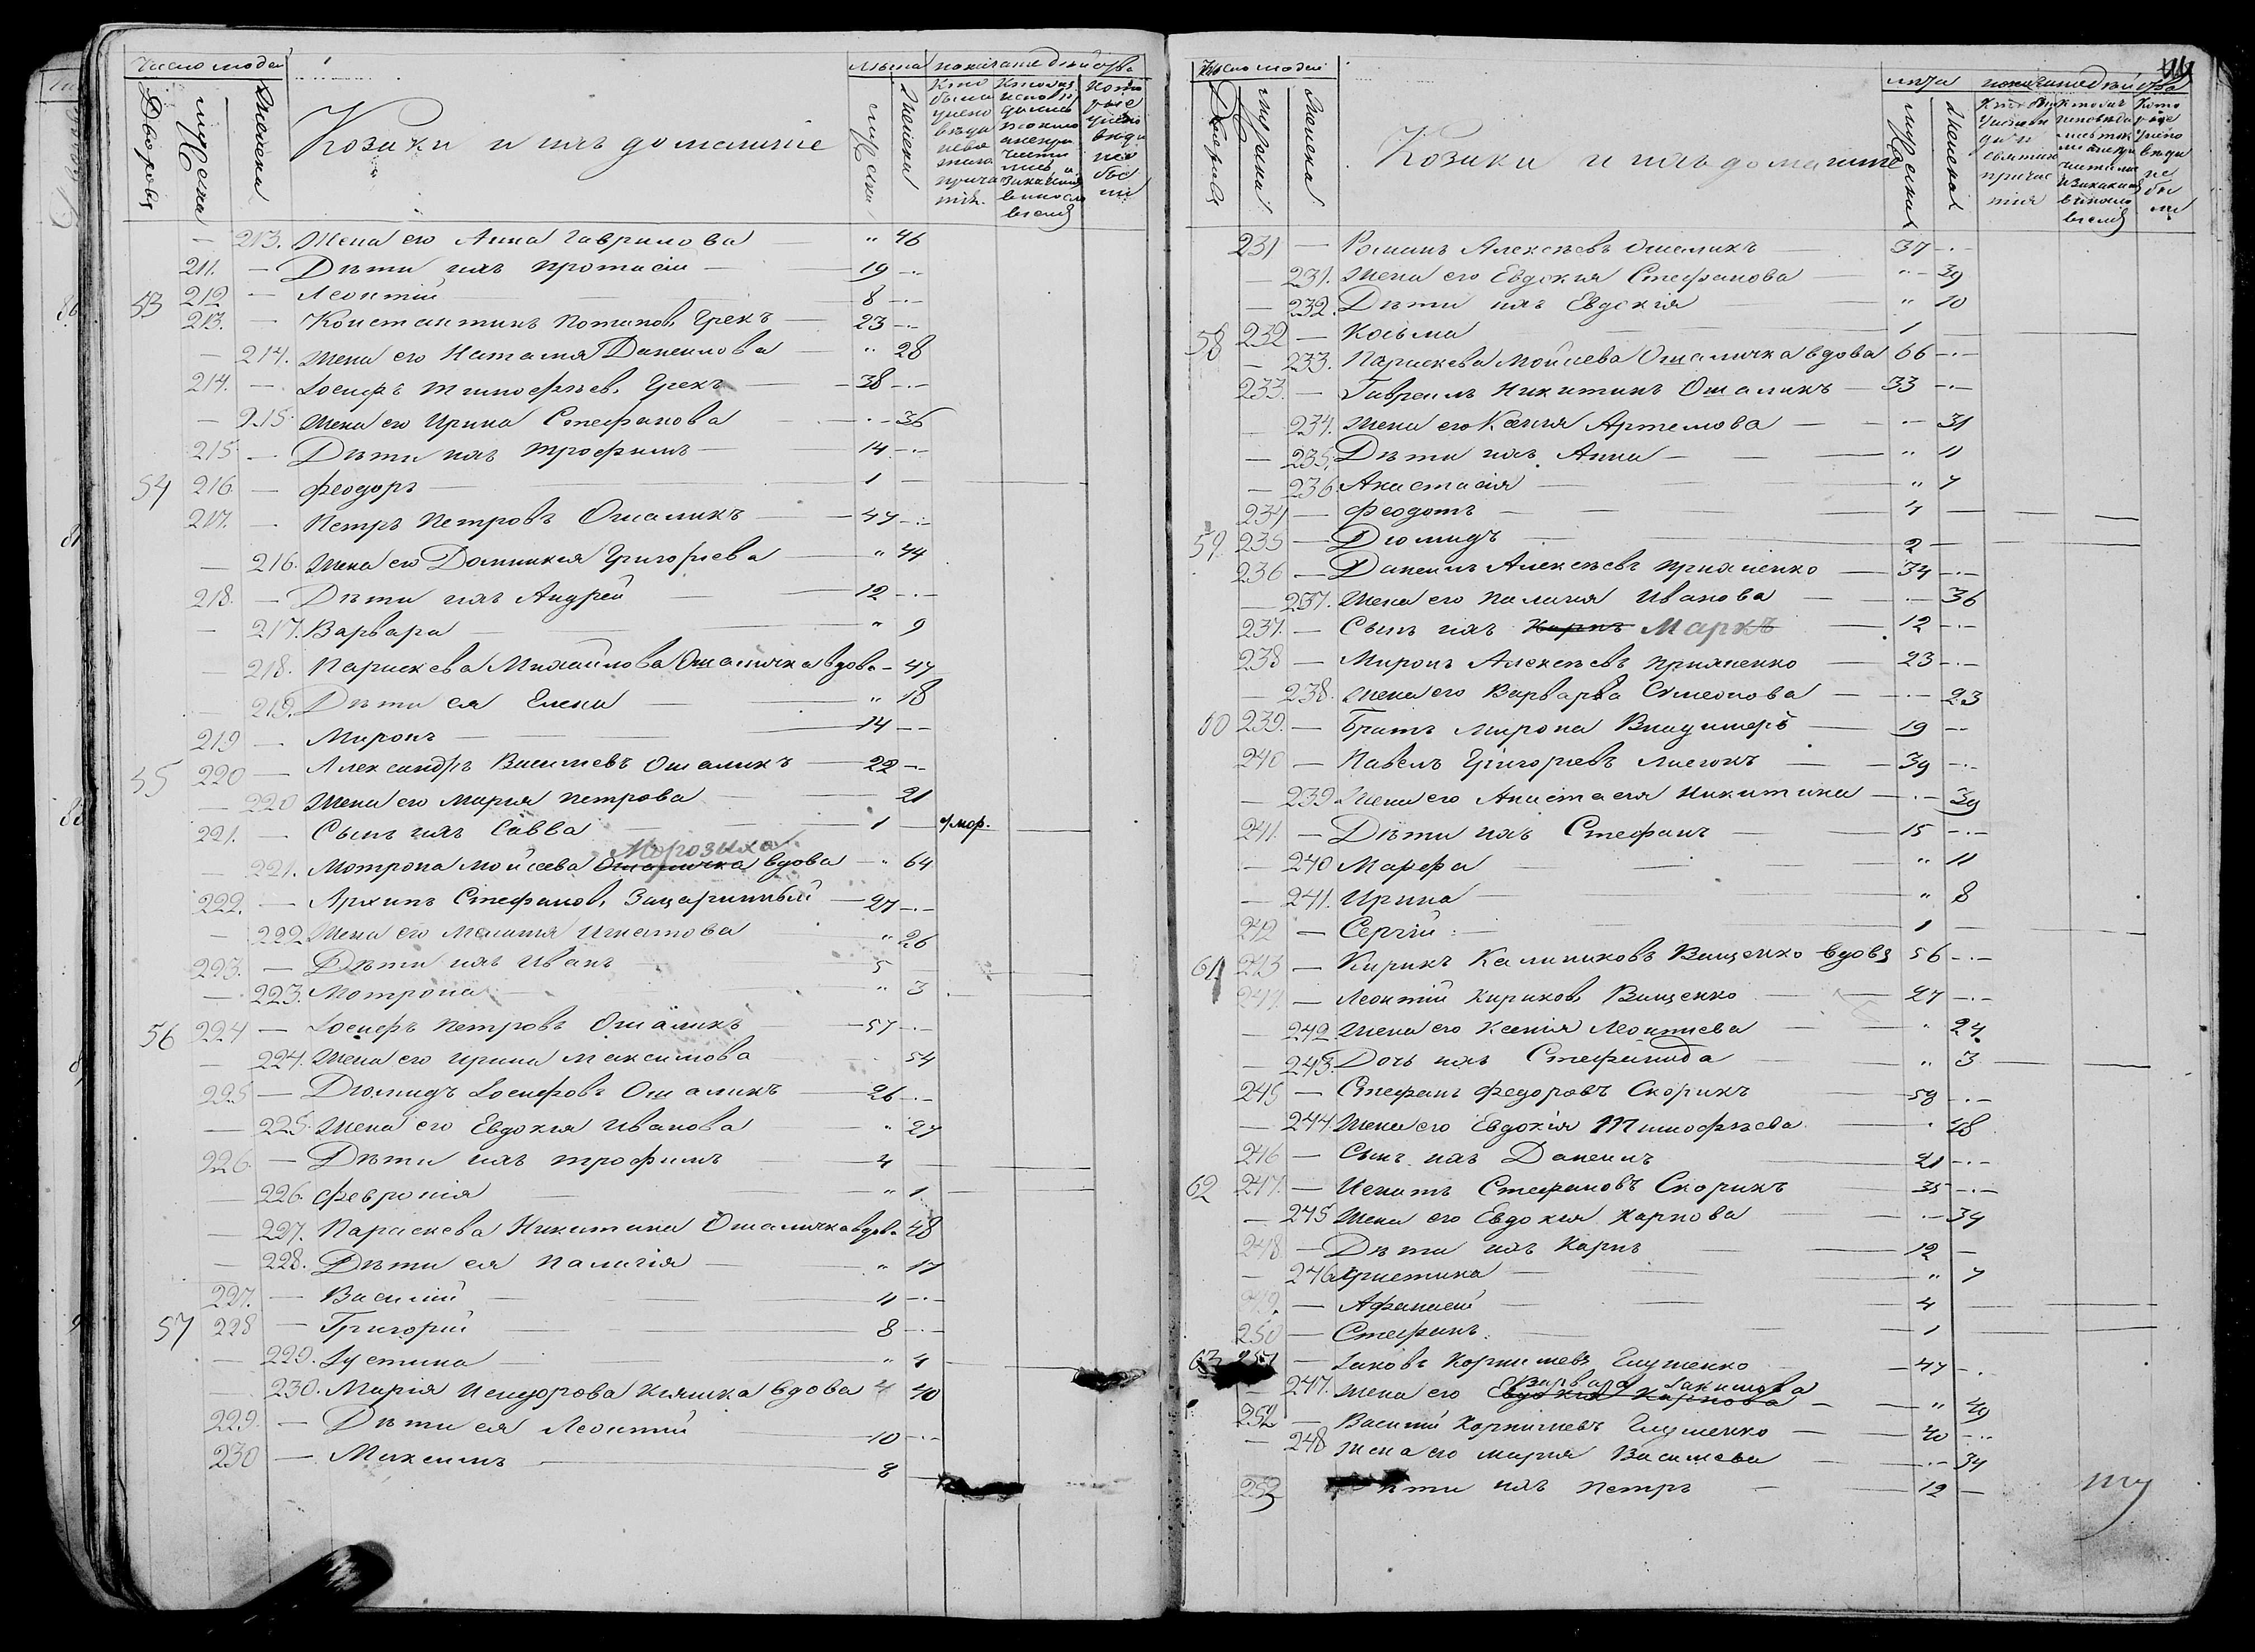 Число людей
Дворовъ
мужеска
женска
Козаки и ихъ домашніе
мужеска
женска
213. Жена его Анна Гаврилова 46
211. Дѣти ихъ Протасій 19
212 Леонтій 8
53 213. Константинъ Потаповъ Грекъ 23
214. Жена его Наталія Даніилова 28
214. Іосифъ Тимофѣевъ Грекъ 38
215. Жена его Ирина Стефанова 36
215 Дѣти ихъ Трофимъ 14
54 216. Феодоръ 1
217. Петръ Петровъ Ошаликъ 47
216. Жена его Домникія Григорьева 44
218. Дѣти ихъ Андрей 12
217. Варвара 9
218. Параскева Михайлова Ошаличка вдова 47
219. Дѣти ея Елена 18
219 Миронъ 14
55 220 Александръ Васильевъ Ошаликъ 22
220 Жена его Марія Петрова 21
221. Сынъ ихъ Савва 1 умор.
Морозиха
221. Мотрона Мойсеева Ошаличка вдова 64
222. Архипъ Стефановъ Зацаринный 27
222 Жена его Меланія Игнатова 26
223. Дѣти ихъ Иванъ 5
223. Мотрона 3
56 224 Іосифъ Петровъ Ошаликъ 57
224. Жена его Ирина Максимова 54
225 Діомидъ Іосифовъ Ошаликъ 26
225. Жена его Евдокія Иванова 27
226. Дѣти ихъ Трофимъ 4
226. Февронія 1
227. Параскева Никитина Ошаличка вдова 48
228. Дѣти ея Палагія 17
227. Василій 11
57 228 Григорій 8
229. Іустина 4
230. Марія Исидорова Кияшка вдова 40
229. Дѣти ея Леонтій 10
230 Максимъ 8
Число людей
Дворовъ
мужеска
женска
Козаки и ихъ домашніе
мужеска
женска
231 Романъ Алексѣевъ Ошаликъ 37
231. Жена его Евдокія Стефанова 39
232. Дѣти ихъ Евдокія 10
58 232 Косьма 1
233. Параскева Мойсеева Ошаличка вдова 66
233. Гавріилъ Никитинъ Ошаликъ 33
234. Жена его Ксенія Артемова 31
235. Дѣти ихъ Анна 11
236. Анастасія 7
234 Феодотъ 4
59 235 Діомидъ 2
236 Даніилъ Алексѣевъ 34
237. Жена его Палагія Иванова 36
237. Сынъ ихъ Карпъ Маркъ 12
238 Миронъ Алексѣевъ 23
238. Жена его Варвара Симеонова 23
60 239. Братъ Мирона Владимеръ 19
240 Павелъ Григорьевъ 39
239. Жена его Анастасія Никитина 39
241. Дѣти ихъ Стефанъ 15
240 Марфа 11
241. Ирина 8
242 Сергій 1
61 243 Кирикъ Калиниковъ Ващенко вдовъ 56
244 Леонтій Кириковъ Ващенко 27
242 Жена его Ксенія Леонтіева 24
243. Дочь ихъ Стефанида 3
245 Стефанъ Федоровъ Скорикъ 59
244 Жена его Евдокія Тимофѣева 48
246 Сынъ ихъ Даніилъ 21
62 247. Игнатъ Стефановъ Скорикъ 35
245 Жена его Евдокія Карпова 34
248 Дѣти ихъ Карпъ 12
246 Христина 7
249. Афанасій 4
250 Стефанъ 1
63 251 Іаковъ Корниліевъ Глущенко 47
Варвара Іакимова
247. Жена его Евдокія Карпова 49
252 Василій Корниліевъ Глущенко 40
248 Жена его Марія Васильева 34
253 ѣти ихъ Петръ 12